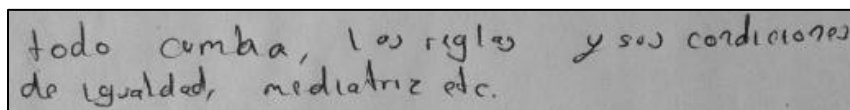 todo cumba, las reglas y sus condiciones
de igualdad, mediatriz etc.